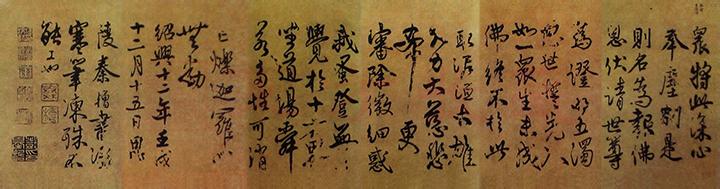 衆將此深心
奉塵刹是
則名為報佛
恩伏請世尊
為證明五濁
惡世誓先入
如一衆生未成
佛終不於此
取泥洹大雄
大力大慈悲
希更
審除微細惑
我蚤登無上
覺於十方界
坐道場舜
若多性可消
亡爍迦羅心
無動
紹興十二年壬戌
十二月十五日
陵秦書
寒筆凍殊不
能工也